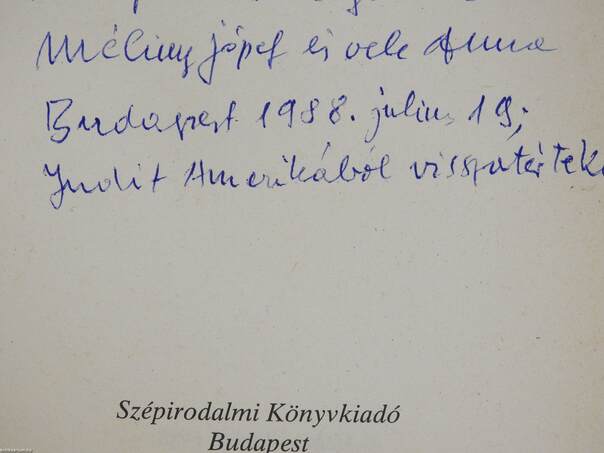 Méliusz József és vele Anna
Budapest 1988. július 19;
Judit Amerikából visszatértek
Szépirodalmi Könyvkiadó
Budapest